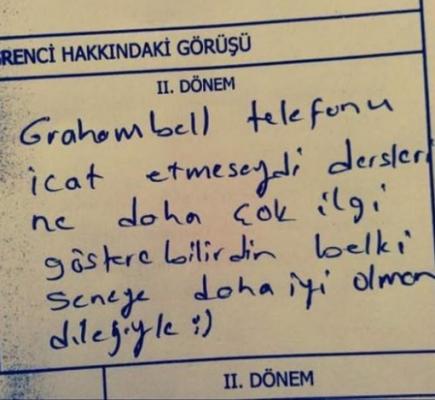 RENCİ HAKKINDAKİ GÖRÜŞÜ
II. DÖNEM
Grahambell telefonu
icat etmeseydi dersleri
ne daha çok ilgi
göstere bilirdin belki
Seneye daha iyi olman
dileğiyle :)
II. DÖNEM